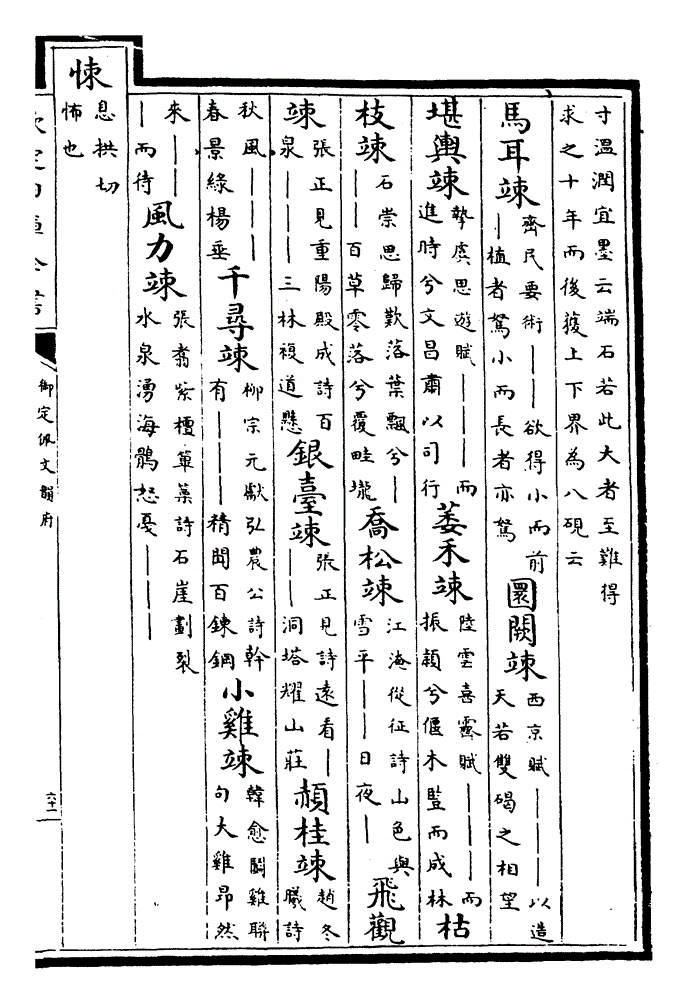 寸溫潤宜墨云端石若此大者至難得
求之十年而後獲上下界為八硯云
馬耳竦 齊民要術｜｜｜欲得小而前｜植者駑小而長者亦駑 圜闕竦 西京賦｜｜｜以造天若雙碣之相望
堪輿竦 摯虞思遊賦｜｜｜而進時兮文昌肅以司行 萎禾竦 陸雲喜霽賦｜｜｜而振穎兮偃木豎而成林 枯
枝竦 石崇思歸歎落葉飄兮｜｜｜百草零落兮覆畦壠 喬松竦 江淹從征詩山色與雪平｜｜日夜｜ 飛觀
竦 張正見重陽殿成詩百泉｜｜｜三林複道懸 銀臺竦 張正見詩遠看｜｜｜洞塔耀山莊 赬桂竦 趙冬曦詩
秋風｜｜｜春景綠楊垂 千尋竦 柳宗元獻弘農公詩幹有｜｜｜精聞百鍊鋼 小雞竦 韓愈鬭雞聯句大雞昂然
來｜｜｜而待 風力竦 張翥紫檀簞藁詩石崖劃裂水泉湧海鶻怒戛｜｜｜
悚 息拱切怖也
御定佩文韻府
六十二